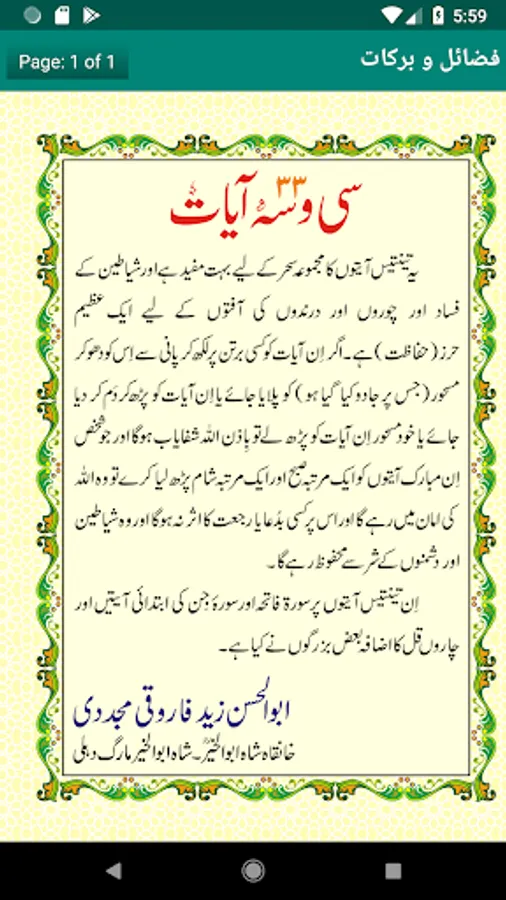 5:59
فضائل و برکات
Page: 1 of 1
سی و سہ آیات
۳۳
یہ تینتیس آیتوں کا مجموعہ سحر کے لیے بہت مفید ہے اور شیاطین کے
فساد اور چوروں اور درندوں کی آفتوں کے لیے ایک عظیم
حرز (حفاظت) ہے۔ اگر اِن آیات کو کسی برتن پر لکھ کر پانی سے اِس کو دھو کر
مسحور (جس پر جادو کیا گیا ہو) کو پلایا جائے یا اِن آیات کو پڑھ کر دَم کر دیا
جائے یا خود مسحور اِن آیات کو پڑھ لے تو بِاذن اللہ شفایاب ہوگا اور جو شخص
اِن مبارک آیتوں کو ایک مرتبہ صبح اور ایک مرتبہ شام پڑھ لیا کرے تو وہ اللہ
کی امان میں رہے گا اور اس پر کسی بدُعا یا رجعت کا اثر نہ ہوگا اور وہ شیاطین
اور دشمنوں کے شر سے محفوظ رہے گا۔
اِن تینتیس آیتوں پر سورۃ فاتحہ اور سورۂ جن کی ابتدائی آیتیں اور
چاروں قل کا اضافہ بعض بزرگوں نے کیا ہے۔
ابوالحسن زید فاروقی مجددی
خانقاہ شاہ ابوالخیرؒ۔ شاہ ابوالخیر مارگ دہلی